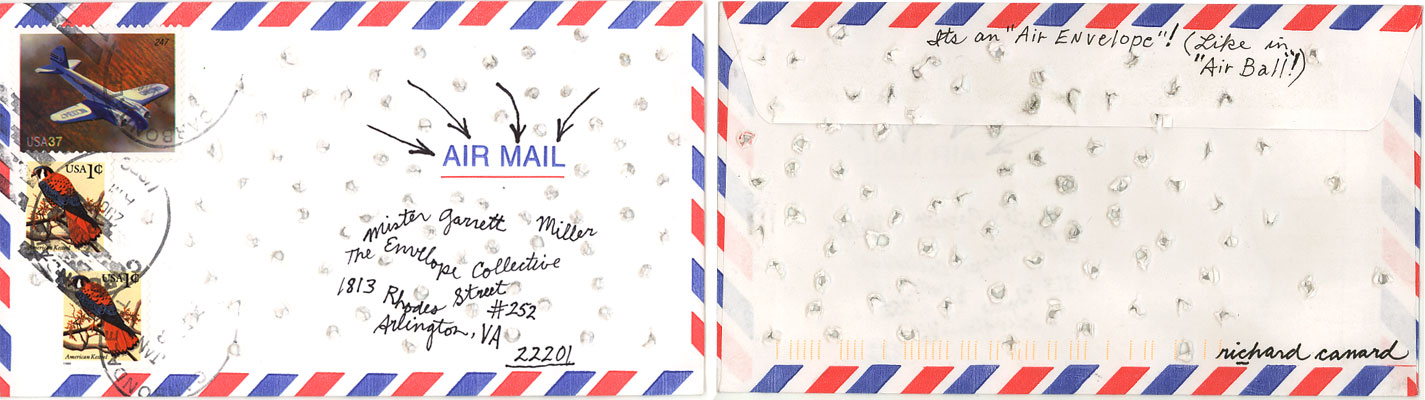 247
USA37
USA 1¢
American Kestrel
USA 1¢
American Kestrel
AIR MAIL
Mister Garrett Miller
The Envelope Collective
1813 Rhodes Street
#252
Arlington, VA
22201
Its an "Air Envelope"! (Like in
"Air Ball!")
richard canard